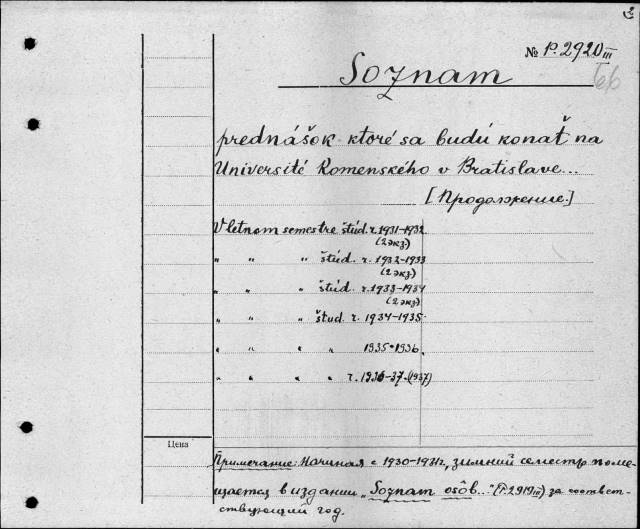 № P. 2920 III
66
Soznam
prednášok ktoré sa budú konať na
Université Komenského v Bratislave...
[Продолжение.]
V letnom semestre štúd. r. 1931-1932
(2 экз)
" " " štúd. r. 1932-1933
(2 экз)
" " " štúd. r. 1933-1934
(2 экз)
" " " štud. r. 1934-1935
" " " " 1935-1936.
" " " " r. 1936-37. (1937)
Цена
Примечание: Начиная с 1930-1931г., зимний семестр поме-
щается в издании „Soznam osôb..." (P. 2919 III) за соответ-
ствующий год.